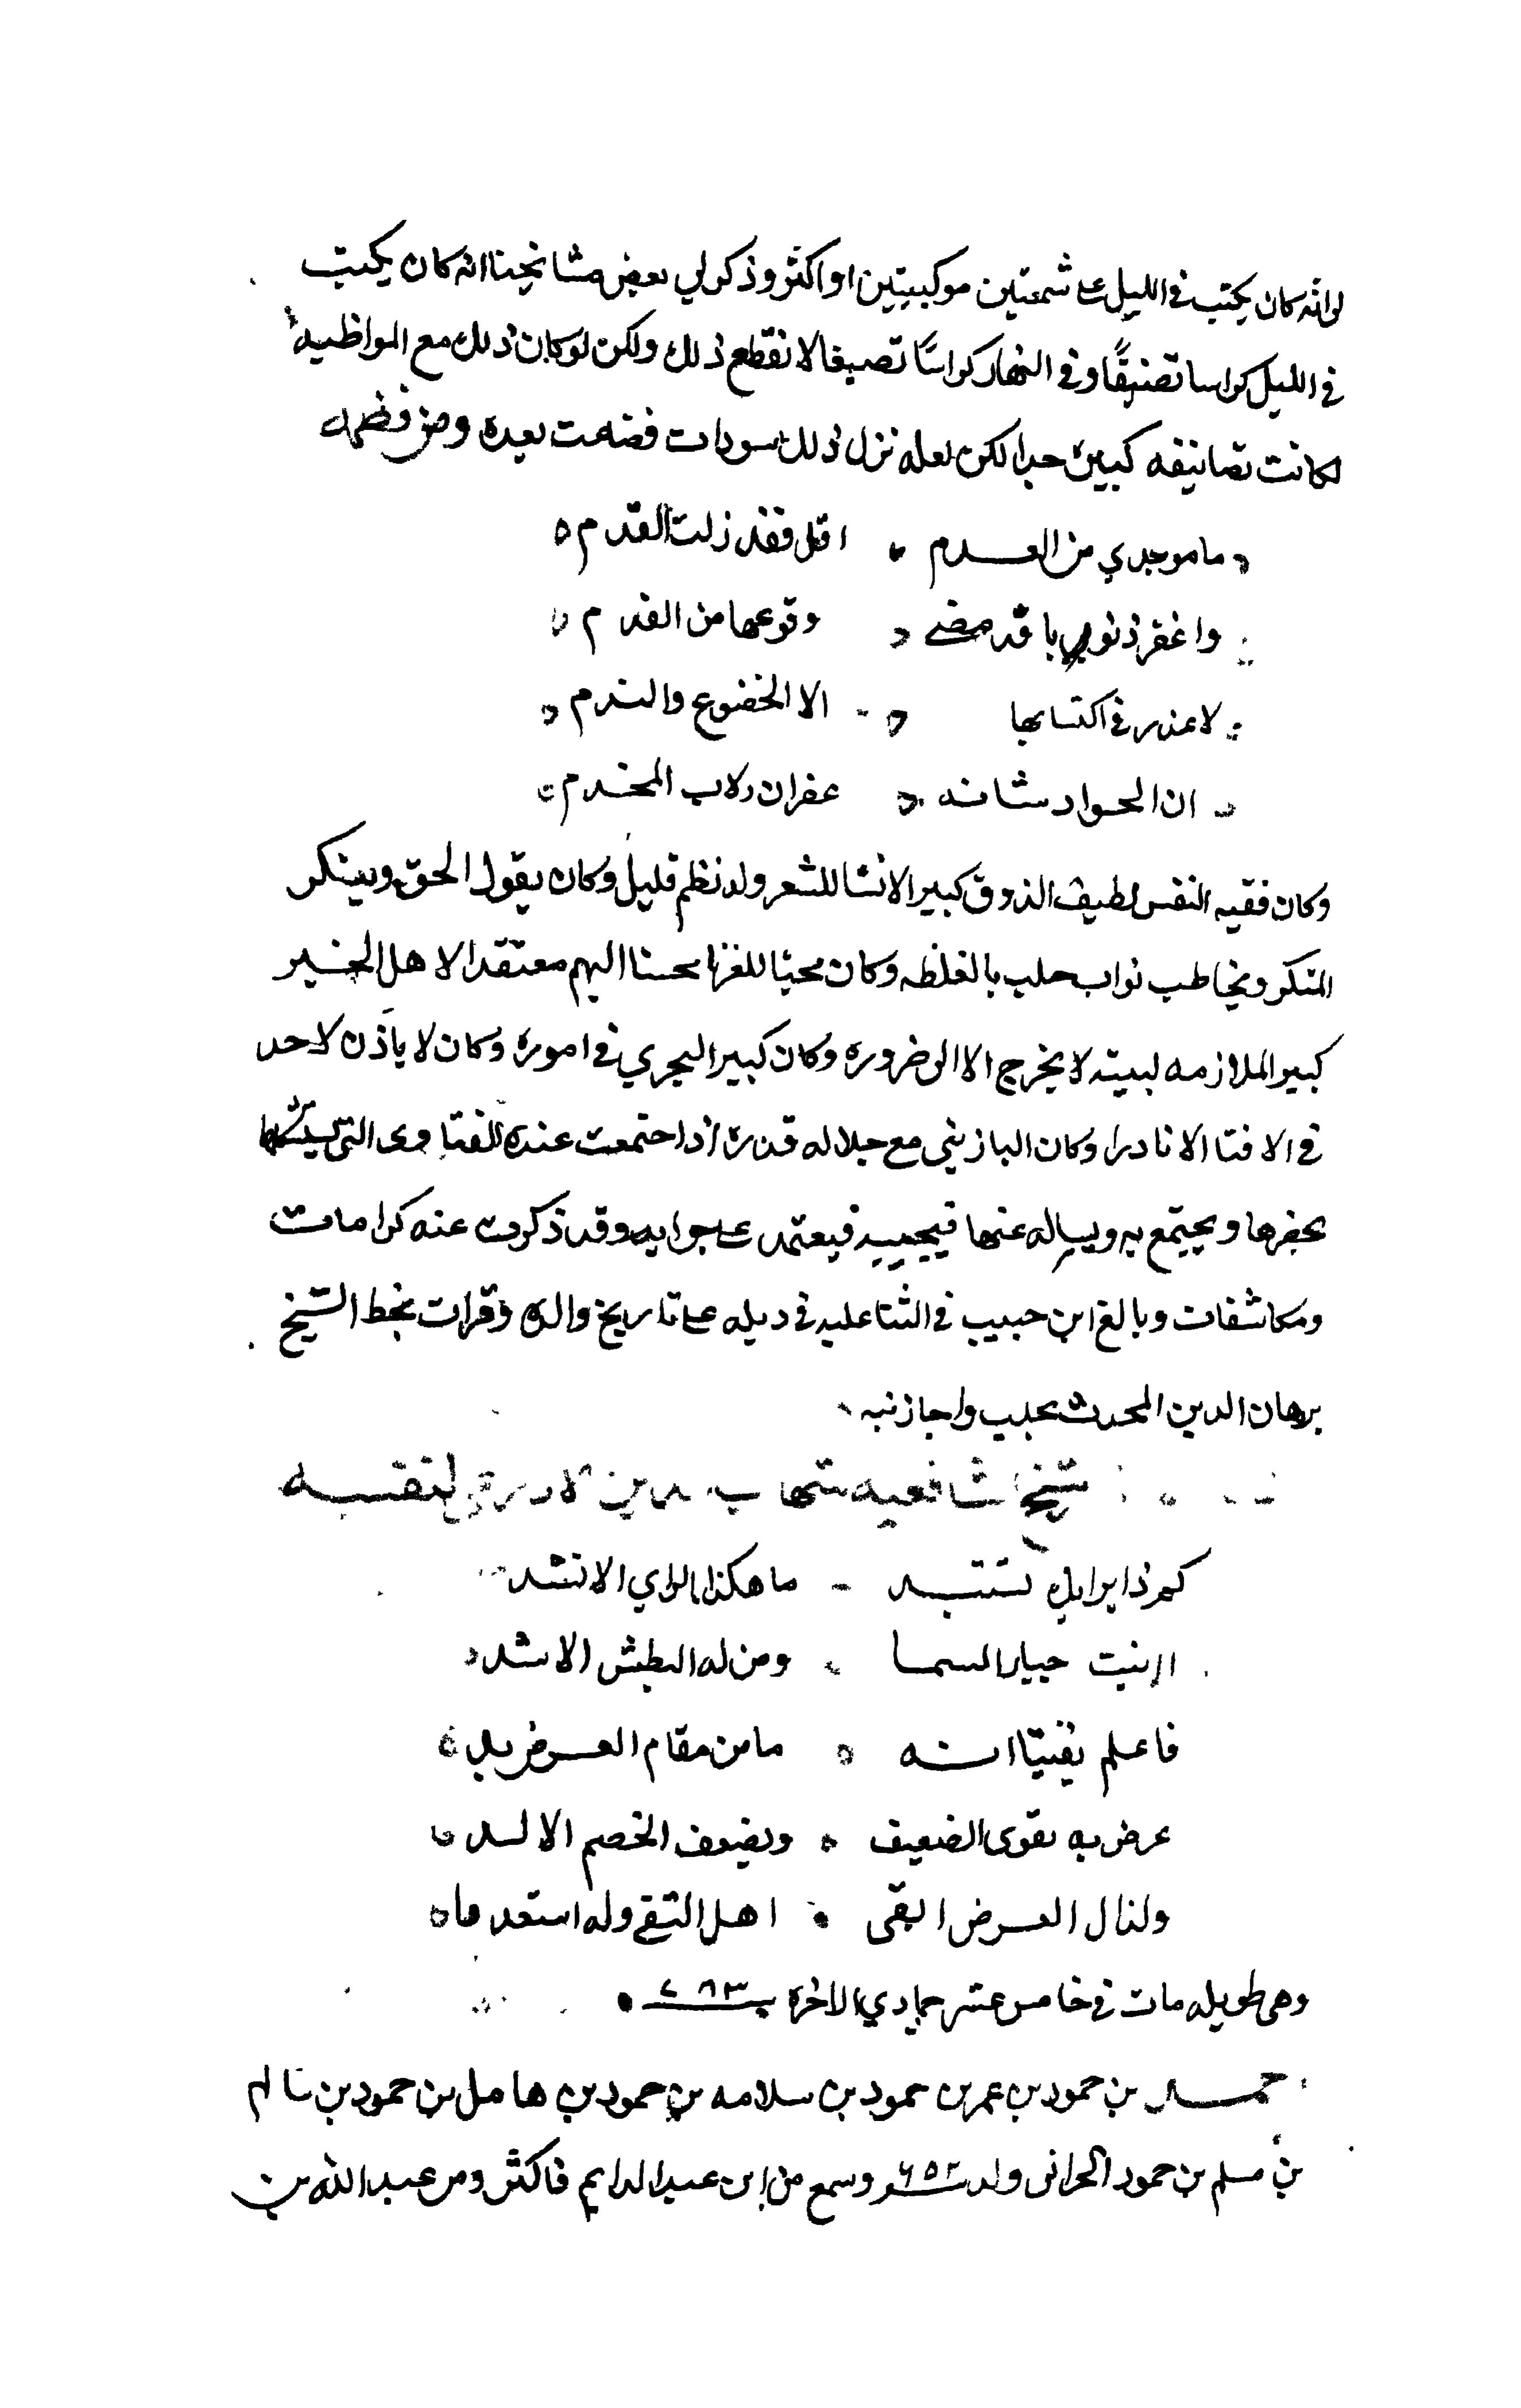 لو انه كان يكتب في الليل على شمعتين موكبيتين او اكثر وذكر لي بعض مشايخنا انه كان يكتب
في الليل كراسا تصنيفًا وفي النهار كراسًا تصنيفا لا نقطع ذلك ولكن لو كان ذلك مع المواظبة
لكانت تصانيفه كبيره جدا لكن لعله نزل ذلك مسودات فضاعت بعده ومن نظمه
ما موجدي من العدم اقل فقد زلت القدم
واغفر ذنوبي قد مضى وقوعها من القدم
لا عذر في اكتسابها الا الخضوع والندم
ان الجواد شانه غفران زلات الخدم
وكان فقيه النفس لطيف الذوق كبير الانشا للشعر وله نظم قليل وكان يقول الحق وينكر
المنكر ويخاطب نواب حلب بالغلظه وكان محبا للغربا محسنا اليهم معتقدا لاهل الخير
كبير الملازمه لبيته لا يخرج الا الى ضروره وكان كبير التحري في اموره وكان لا ياذن لاحد
في الافتا الا نادرا وكان الباريني مع جلاله قدره اذا اجتمعت عنده الفتاوى التي يستشكلها
يحضرها ويجتمع به ويساله عنها فيجيبه فيعتمد على جوابه وقد ذكرت عنه كرامات
ومكاشفات وبالغ ابن حبيب في الثنا عليه في ذيله على تاريخ والده وقرات بخط الشيخ
برهان الدين المحدث بحلب واجازنيه
شيخ الشافعيه شهاب الدين الاذرعي لنفسه
كم ذا برايك تستبد ما هكذا الراي الاسد
اامنت جبار السما ومن له البطش الاشد
فاعلم يقينا انه ما من مقام العرض بد
عرض به يقوى الضعيف ويضعف الخصم الالد
ولذال العرض اتقى اهل التقى وله استعدوا
وهي طويله مات في خامس عشر جمادي الاخرة سنة ٧٨٣
حمد بن حمود بن عمر بن حمود بن سلامه بن حمود بن هامل بن حمود بن سالم
بن مسلم بن حمود الحراني ولد سنه ٦٥٢ وسمع من ابن عبد الدايم فاكثر ومن عبد الله بن